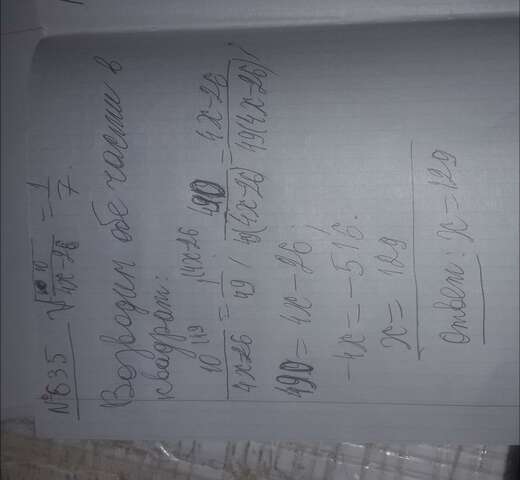 №635 √10/4x-26 = 1/7.
Возводим обе части в
квадрат:
10 |49 / 4x26 = 1 |4x26 / 49 / 490 / 49(4x-26) = 4x-26 / 49(4x-26) /
490 = 4x-26 /
-4x = -516.
x = 129
Ответ: x=129